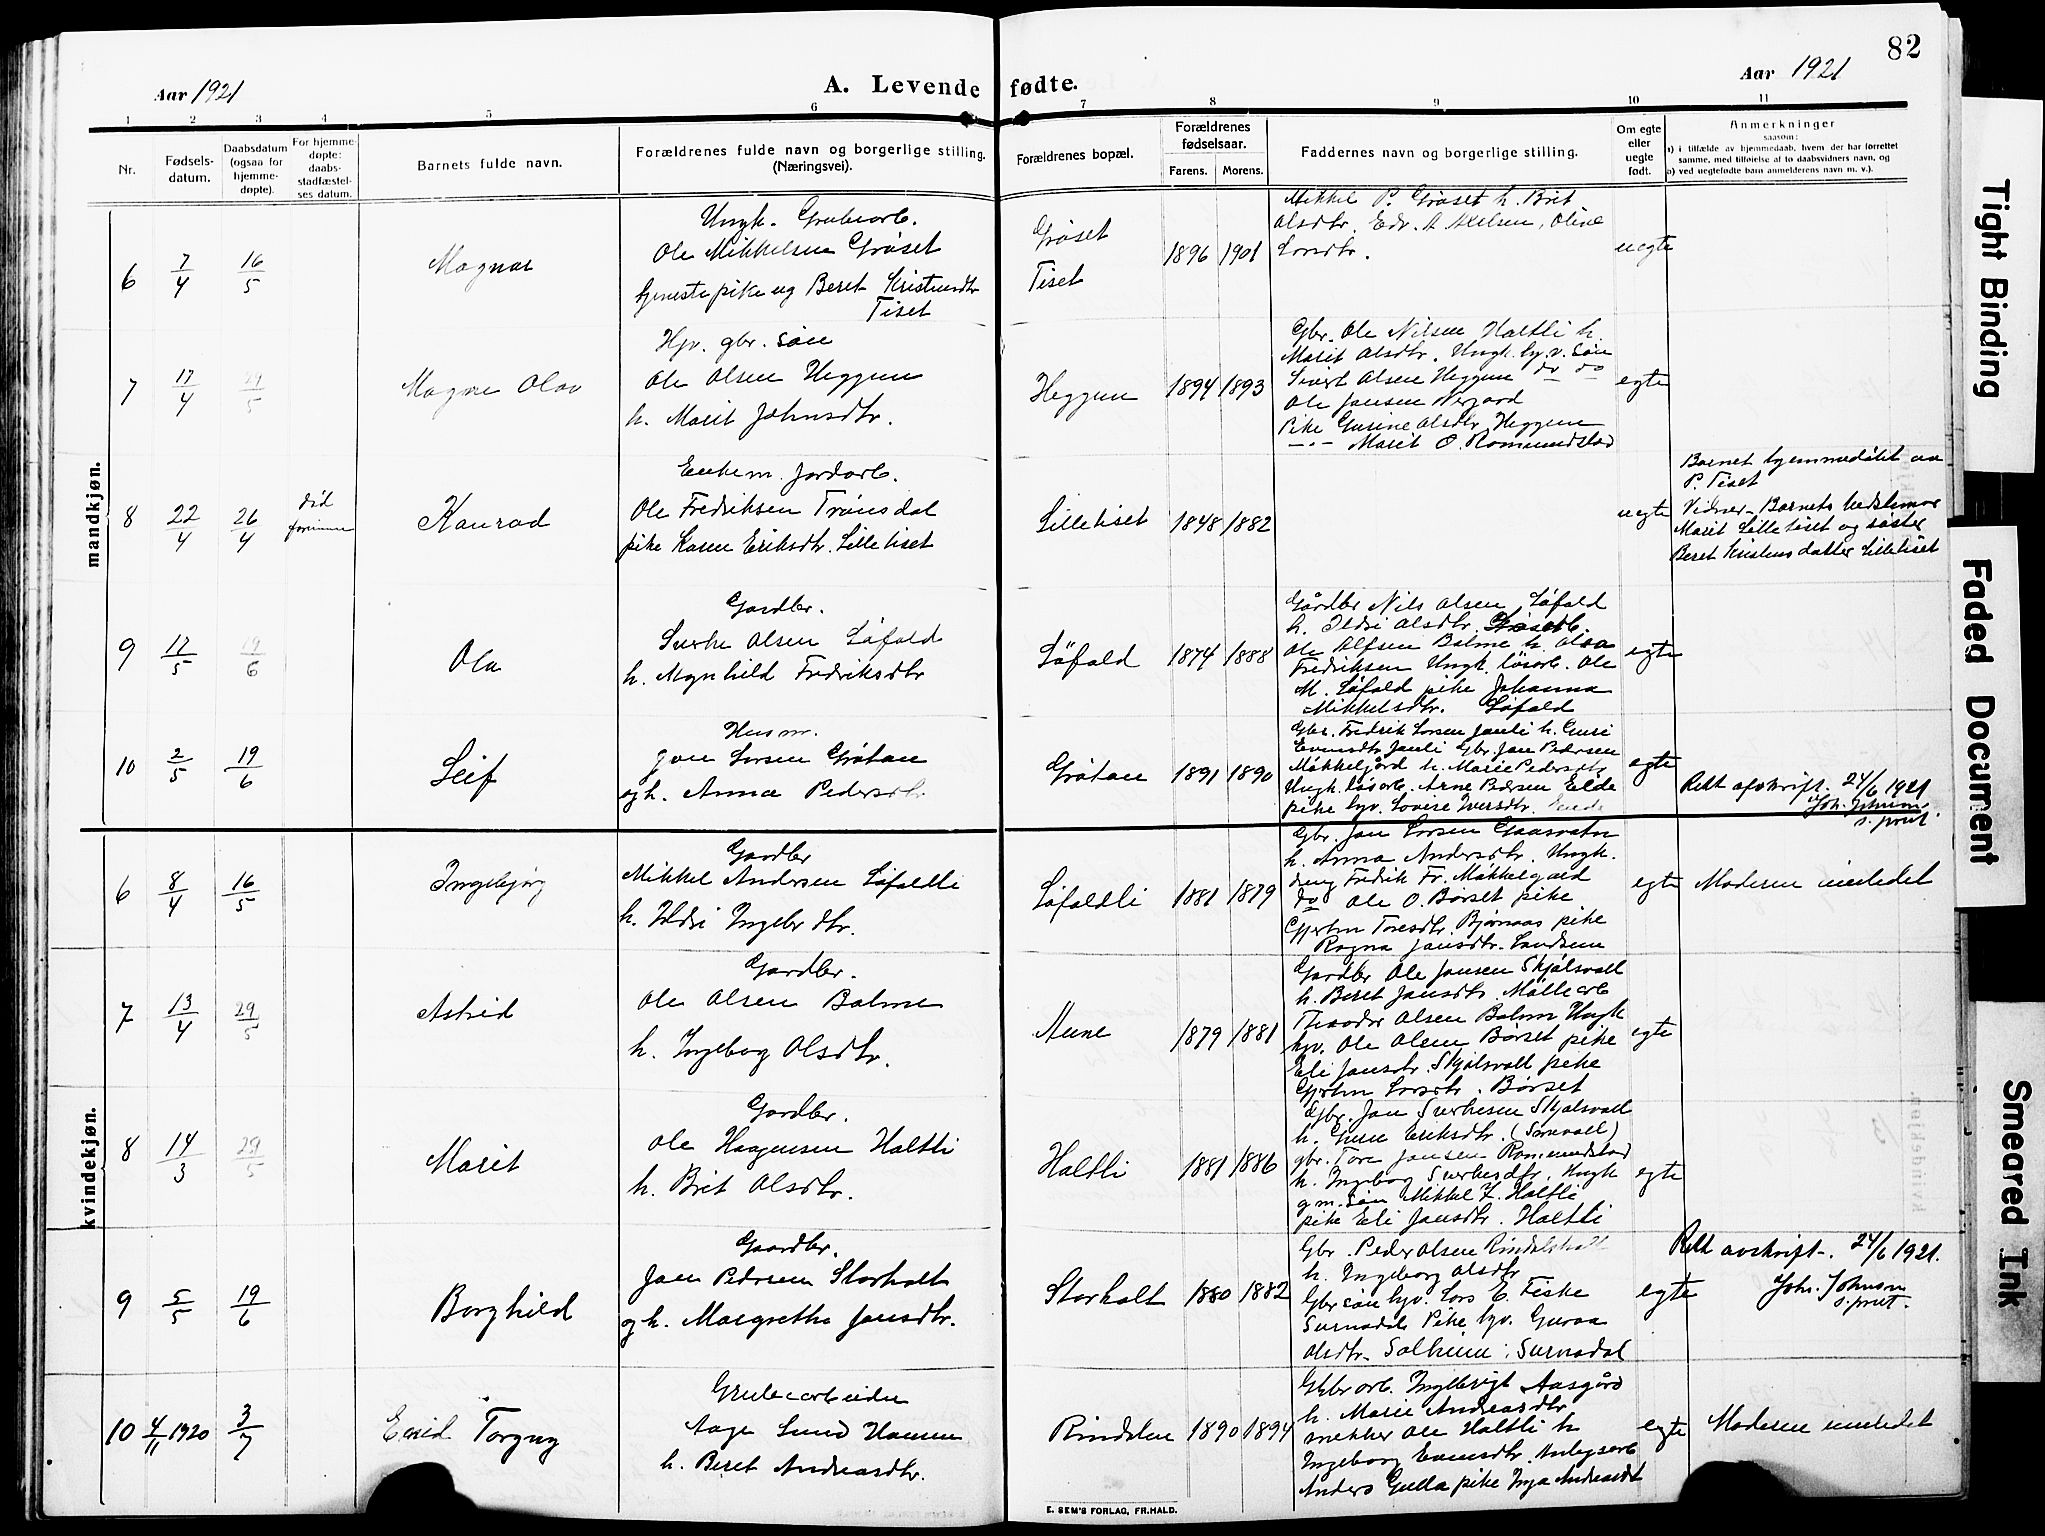 82
Aar 1921
A. Levende fødte.
Aar 1921
1 2 3 4 5 6 7 8 9 10 11
Nr.
Fødsels-
datum.
Daabsdatum
(ogsaa for
hjemme-
døpte).
For hjemme-
døpte:
daabs-
stadfæstel-
ses datum.
Barnets fulde navn.
Forældrenes fulde navn og borgerlige stilling.
(Næringsvei).
Forældrenes bopæl.
Forældrenes
fødselsaar.
Farens. Morens.
Faddernes navn og borgerlige stilling.
Om egte
eller
uegte
født.
Anmerkninger
saasom:
a) i tilfælde av hjemmedaab, hvem der har forrettet
samme, med tilføielse af to daabsvidners navn, og
b) ved uegtefødte barn anmelderens navn m. v.).
mandkjøn.
6 7/4 16/5 Magnar
Ungk. Grubearb.
Ole Mikkelsen Grøset
tjenestepike ug Beret Kristensdtr
Tiset
Grøset
Tiset
1896 1901
Mikkel P. Grøset h. Brit
Olsdtr. Edv. A. Axelsen, Oline
Larsdtr.
uegte
7 17/4 29/5 Magne Olav
Hjv. gbr. søn
Ole Olsen Heggem
h. Marit Johnsdtr.
Heggem
1894 1893
Gbr. Ole Nilsen Haltli h.
Marit Olsdtr. Ungk. hjv. søn
Sivert Olsen Heggem do do
Ole Jansen Nergard
Pike Gurine Olsdtr. Heggem
-"- Marit O. Romundstad
egte
8 22/4 26/4 død
forinnen
Konrad
Enkem. Jordarb.
Ole Fredriksen Trønsdal
pike Karen Eriksdtr. Lilletiset
Lilletiset
1848 1882
uegte
Barnet hjemmedøbt av
P. Tiset
Vidner - Barnets bedstemor
Marit Lilletiset og søster
Beret Kristensdatter Lilletiset
9 17/5 19/6 Ola
Gardbr.
Sverke Olsen Løfald
h. Magnhild Fredriksdtr
Løfald
1874 1888
Gårdbr Nils Olsen Løfald
h. Ildri Olsdtr.
Ole Olsen Bolme h. Olava
Fredriksen Ungk. løsarb. Ole
M. Løfald pike Johanna
Mikkelsdtr. Løfald
egte
10 2/5 19/6 Leif
Husm.
Jon Larsen Grøtan
og h. Anna Pedersdtr.
Grøtan
1891 1890
Gbr. Fredrik Larsen Janli h. Guri
Evensdtr Janli Gbr. Jan Pedersen
Møkkelgård h. Marie Pedersdtr
Ungk. løsarb. Arne Bersen Elde
pike hjv. Lovise Iversdtr.
egte
Rett afskrift. 24/6 1921
Joh. Johnson
s. prest.
kvindekjøn.
6 8/4 16/5 Ingebjørg
Gardbr
Mikkel Andersen Løfaldli
h. Ildri Ingebr dtr.
Løfaldli
1881 1879
Gbr. Jan Larsen Gaasvatn
h. Anna Andersdtr. Ungk.
dreng Fredrik Fr. Møkkelgaard
do Ole O. Børset pike
Gjertru Toresdtr. Bjørnaas pike
Ragna Jansdtr. Landsem
egte
Moderen innledet
7 13/4 29/5 Astrid
Gardbr.
Ole Olsen Bolme
h. Ingebog Olsdtr.
Aune
1879 1881
Gardbr Ole Jansen Skjølsvoll
h. Beret Jansdtr. Møllearb
Theodor Olsen Bolme Ungk
hjv. Ole Olsen Børset pike
Eli Jansdtr. Skjølsvoll pike
Gjertru Larsdtr. Børset
egte
8 14/3 29/5 Marit
Gardbr.
Ole Haagensen Haltli
h. Brit Olsdtr.
Haltli
1881 1886
Gbr. Jan Sverkesen Skjølsvoll
h. Guri Eriksdtr. (Sørvoll)
gbr. Tore Jansen Romundstad
h. Ingebog Sverkesdtr. Ungk
g.m. søn Mikkel Z. Haltli
pike Eli Jansdtr. Haltli
egte
9 5/5 19/6 Borghild
Gaardbr.
Jan Pedersen Storholt
og h. Margrethe Jansdtr.
Storholt
1880 1882
Gbr. Peder Olsen Rindalsholt
h. Ingeborg Olsdtr
Gbr søn hjv. Lars E. Fiske
Surnadal Pike hjv. Guroa
Olsdtr. Solheim, Surnadal
egte
Rett avskrift. 24/6 1921.
Joh. Johnson
s. prest.
10 4/11 1920 3/7 Enid Torgny
Grubearbeider
Aage Lund Hansen
h. Beret Andreasdtr.
Rindalen
1890 1894
Grubarb. Ingebrigt Aasgård
h. Marie Andreasdtr.
snekker Ole Haltli h
Ingeborg Evensdtr. Anlegsarb
Anders Gulla pike Inga Andreasdt
egte
Moderen innledet
E. SEM'S FORLAG, FR.HALD.
Tight Binding
Faded Document
Smeared Ink